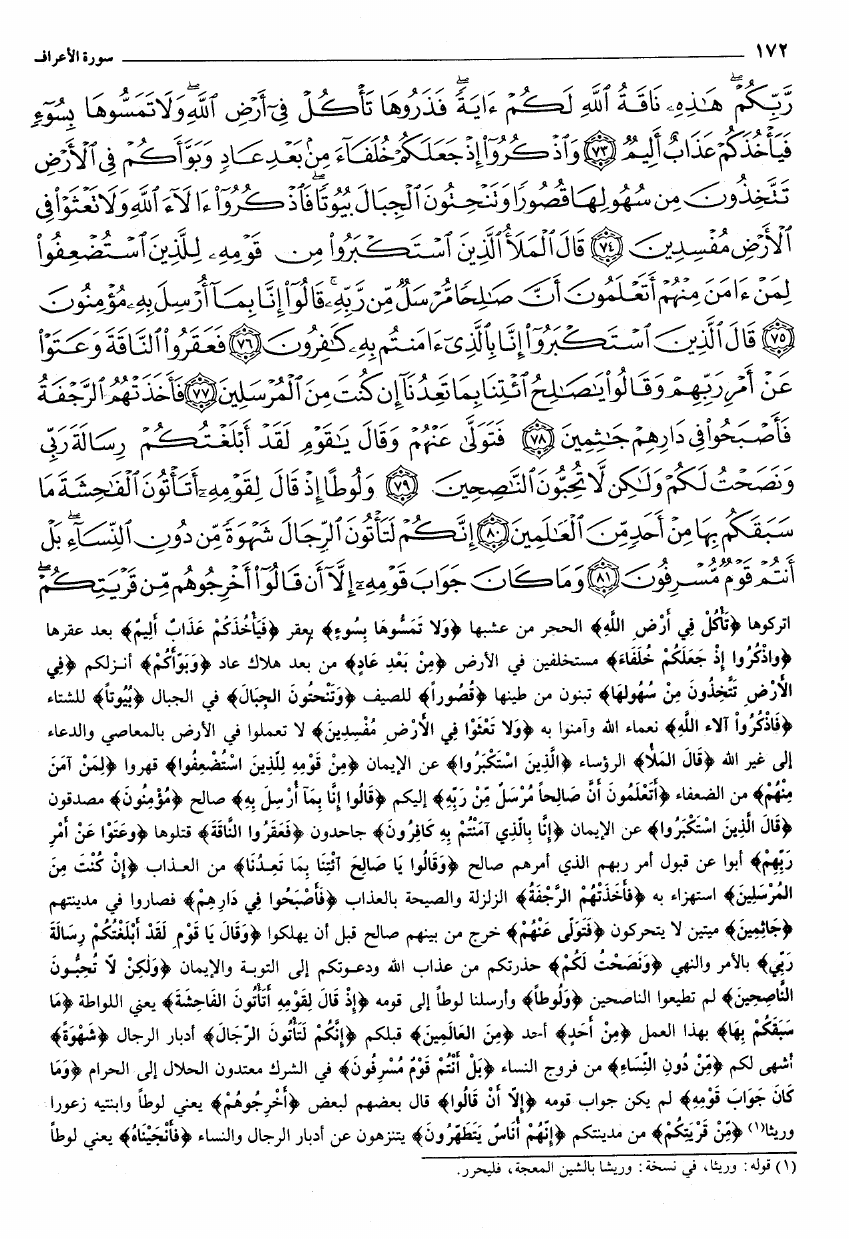 ١٧٢
سورة الأعراف
رَّبِّكُمْ ۖ هَٰذِهِۦ نَاقَةُ ٱللَّهِ لَكُمْ ءَايَةً ۖ فَذَرُوهَا تَأْكُلْ فِىٓ أَرْضِ ٱللَّهِ ۖ وَلَا تَمَسُّوهَا بِسُوٓءٍ
فَيَأْخُذَكُمْ عَذَابٌ أَلِيمٌ ﴿٧٣﴾ وَٱذْكُرُوٓا۟ إِذْ جَعَلَكُمْ خُلَفَآءَ مِنۢ بَعْدِ عَادٍ وَبَوَّأَكُمْ فِى ٱلْأَرْضِ
تَتَّخِذُونَ مِن سُهُولِهَا قُصُورًا وَتَنْحِتُونَ ٱلْجِبَالَ بُيُوتًا ۖ فَٱذْكُرُوٓا۟ ءَالَآءَ ٱللَّهِ وَلَا تَعْثَوْا۟ فِى
ٱلْأَرْضِ مُفْسِدِينَ ﴿٧٤﴾ قَالَ ٱلْمَلَأُ ٱلَّذِينَ ٱسْتَكْبَرُوا۟ مِن قَوْمِهِۦ لِلَّذِينَ ٱسْتُضْعِفُوا۟
لِمَنْ ءَامَنَ مِنْهُمْ أَتَعْلَمُونَ أَنَّ صَٰلِحًا مُّرْسَلٌ مِّن رَّبِّهِۦ ۚ قَالُوٓا۟ إِنَّا بِمَآ أُرْسِلَ بِهِۦ مُؤْمِنُونَ
﴿٧٥﴾ قَالَ ٱلَّذِينَ ٱسْتَكْبَرُوٓا۟ إِنَّا بِٱلَّذِىٓ ءَامَنتُم بِهِۦ كَٰفِرُونَ ﴿٧٦﴾ فَعَقَرُوا۟ ٱلنَّاقَةَ وَعَتَوْا۟
عَنْ أَمْرِ رَبِّهِمْ وَقَالُوا۟ يَٰصَٰلِحُ ٱئْتِنَا بِمَا تَعِدُنَآ إِن كُنتَ مِنَ ٱلْمُرْسَلِينَ ﴿٧٧﴾ فَأَخَذَتْهُمُ ٱلرَّجْفَةُ
فَأَصْبَحُوا۟ فِى دَارِهِمْ جَٰثِمِينَ ﴿٧٨﴾ فَتَوَلَّىٰ عَنْهُمْ وَقَالَ يَٰقَوْمِ لَقَدْ أَبْلَغْتُكُمْ رِسَالَةَ رَبِّى
وَنَصَحْتُ لَكُمْ وَلَٰكِن لَّا تُحِبُّونَ ٱلنَّٰصِحِينَ ﴿٧٩﴾ وَلُوطًا إِذْ قَالَ لِقَوْمِهِۦٓ أَتَأْتُونَ ٱلْفَٰحِشَةَ مَا
سَبَقَكُم بِهَا مِنْ أَحَدٍ مِّنَ ٱلْعَٰلَمِينَ ﴿٨٠﴾ إِنَّكُمْ لَتَأْتُونَ ٱلرِّجَالَ شَهْوَةً مِّن دُونِ ٱلنِّسَآءِ ۚ بَلْ
أَنتُمْ قَوْمٌ مُّسْرِفُونَ ﴿٨١﴾ وَمَا كَانَ جَوَابَ قَوْمِهِۦٓ إِلَّآ أَن قَالُوٓا۟ أَخْرِجُوهُم مِّن قَرْيَتِكُمْ ۖ
اتركوها ﴿تَأْكُلْ فِي أَرْضِ اللَّهِ﴾ الحجر من عشبها ﴿وَلا تَمَسُّوهَا بِسُوءٍ﴾ بعقر ﴿فَيَأْخُذَكُمْ عَذَابٌ أَلِيمٌ﴾ بعد عقرها
﴿واذْكُرُوا إِذْ جَعَلَكُمْ خُلَفَاءَ﴾ مستخلفين في الأرض ﴿مِنْ بَعْدِ عَادٍ﴾ من بعد هلاك عاد ﴿وَبَوَّأَكُمْ﴾ أنزلكم ﴿فِي
الأَرْضِ تَتَّخِذُونَ مِنْ سُهُولِهَا﴾ تبنون من طينها ﴿قُصُوراً﴾ للصيف ﴿وَتَنْحتُونَ الجِبَالَ﴾ في الجبال ﴿بُيُوتاً﴾ للشتاء
﴿فَاذْكُرُواْ آلاءَ اللَّهِ﴾ نعماء الله وآمنوا به ﴿وَلا تَعْثَوْا فِي الأَرْضِ مُفْسِدِينَ﴾ لا تعملوا في الأرض بالمعاصي والدعاء
إلى غير الله ﴿قَالَ المَلأُ﴾ الرؤساء ﴿الَّذِينَ اسْتَكْبَرُوا﴾ عن الإيمان ﴿مِنْ قَوْمِهِ لِلَّذِينَ اسْتُضْعِفُوا﴾ قهروا ﴿لِمَنْ آمَنَ
مِنْهُمْ﴾ من الضعفاء ﴿أَتَعْلَمُونَ أَنَّ صَالِحاً مُرْسَلٌ مِّنْ رَبِّهِ﴾ إليكم ﴿قَالُوا إِنَّا بِمَآ أُرْسِلَ بِهِ﴾ صالح ﴿مُؤْمِنُونَ﴾ مصدقون
﴿قَالَ الَّذِينَ اسْتَكْبَرُوا﴾ عن الإيمان ﴿إِنَّا بِالَّذِي آمَنْتُمْ بِهِ كَافِرُونَ﴾ جاحدون ﴿فَعَقَرُوا النَّاقَةَ﴾ قتلوها ﴿وعَتَوْا عَنْ أَمْرِ
رَبِّهِمْ﴾ أبوا عن قبول أمر ربهم الذي أمرهم صالح ﴿وَقَالُوا يَا صَالِحَ ائْتِنَا بِمَا تَعِدُنَا﴾ من العذاب ﴿إِنْ كُنْتَ مِنَ
المُرْسَلِينَ﴾ استهزاء به ﴿فأَخَذَتْهُمُ الرَّجْفَةُ﴾ الزلزلة والصيحة بالعذاب ﴿فَأَصْبَحُوا فِي دَارِهِمْ﴾ فصاروا في مدينتهم
﴿جَاثِمِينَ﴾ ميتين لا يتحركون ﴿فَتَوَلَّى عَنْهُمْ﴾ خرج من بينهم صالح قبل أن يهلكوا ﴿وَقَالَ يَا قَوْمِ لَقَدْ أَبْلَغْتُكُمْ رِسَالَةَ
رَبِّي﴾ بالأمر والنهي ﴿وَنَصَحْتُ لَكُمْ﴾ حذرتكم من عذاب الله ودعوتكم إلى التوبة والإيمان ﴿وَلَكِنْ لاَّ تُحِبُّونَ
النَّاصِحِينَ﴾ لم تطيعوا الناصحين ﴿وَلُوطاً﴾ وأرسلنا لوطاً إلى قومه ﴿إِذْ قَالَ لِقَوْمِهِ أَتَأْتُونَ الفَاحِشَةَ﴾ يعني اللواطة ﴿مَا
سَبَقَكُمْ بِهَا﴾ بهذا العمل ﴿مِنْ أَحَدٍ﴾ أحد ﴿مِنَ العَالَمِينَ﴾ قبلكم ﴿إِنَّكُمْ لَتَأْتُونَ الرِّجَالَ﴾ أدبار الرجال ﴿شَهْوَةً﴾
أشهى لكم ﴿مِّنْ دُونِ النِّسَاءِ﴾ من فروج النساء ﴿بَلْ أَنْتُمْ قَوْمٌ مُسْرِفُونَ﴾ في الشرك معتدون الحلال إلى الحرام ﴿وَمَا
كَانَ جَوَابَ قَوْمِهِ﴾ لم يكن جواب قومه ﴿إِلاَّ أَنْ قَالُوا﴾ قال بعضهم لبعض ﴿أَخْرِجُوهُمْ﴾ يعني لوطاً وابنتيه زعورا
وريثا(١) ﴿مِّنْ قَرْيَتِكُمْ﴾ من مدينتكم ﴿إِنَّهُمْ أُنَاسٌ يَتَطَهَّرُونَ﴾ يتنزهون عن أدبار الرجال والنساء ﴿فَأَنْجَيْنَاهُ﴾ يعني لوطاً
(١) قوله: وريثا، في نسخة: وريشا بالشين المعجة، فليحرر.